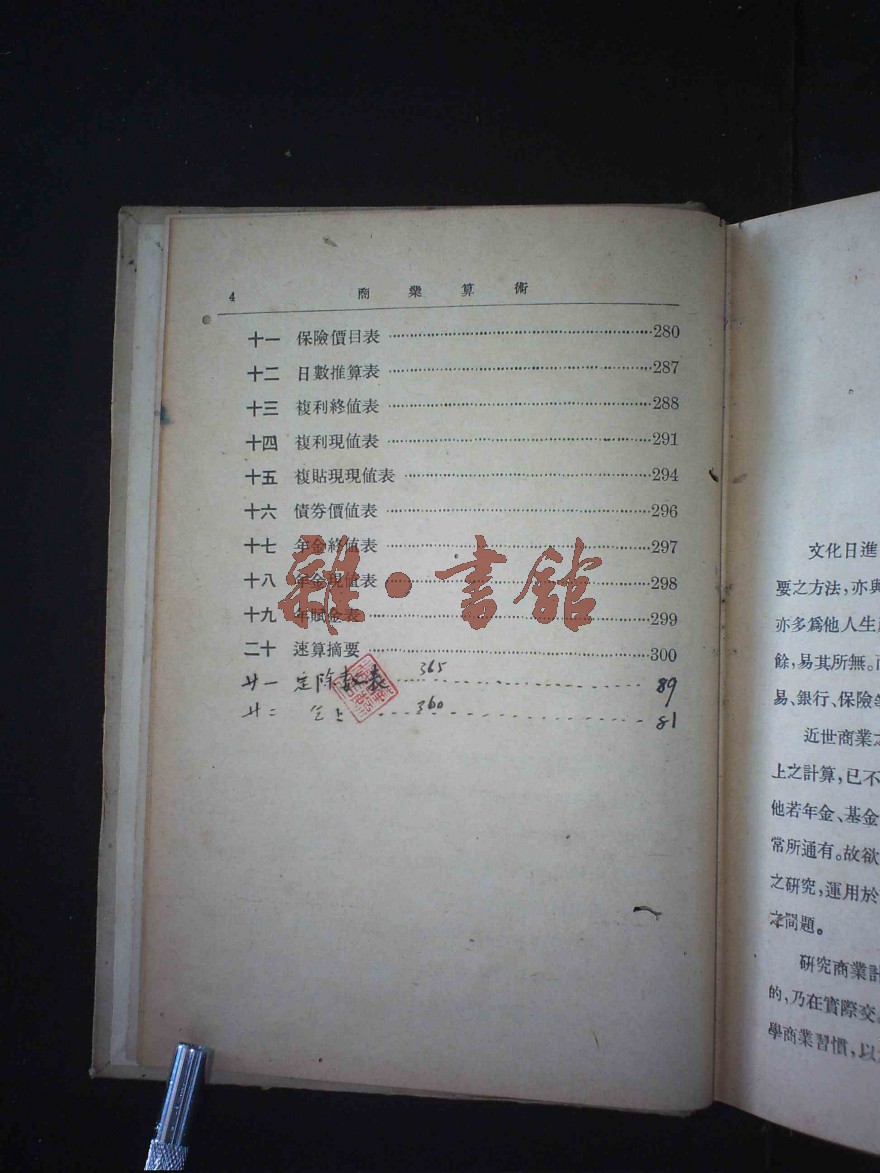 4 商業算術
十一 保險價目表 280
十二 日數推算表 287
十三 複利終値表 288
十四 複利現値表 291
十五 複貼現現値表 294
十六 債券價値表 296
十七 年金終値表 297
十八 年金現値表 298
十九 年賦金表 299
二十 速算摘要 300
廿一 定除數表 365 89
廿二 仝上 360 81
雜·書館
文化日進
要之方法,亦與
亦多爲他人生
餘,易其所無。
易、銀行、保險等
近世商業之
上之計算,已不
他若年金、基金
常所通有。故欲
之研究,運用於
之問題。
研究商業計
的,乃在實際交
學商業習慣,以